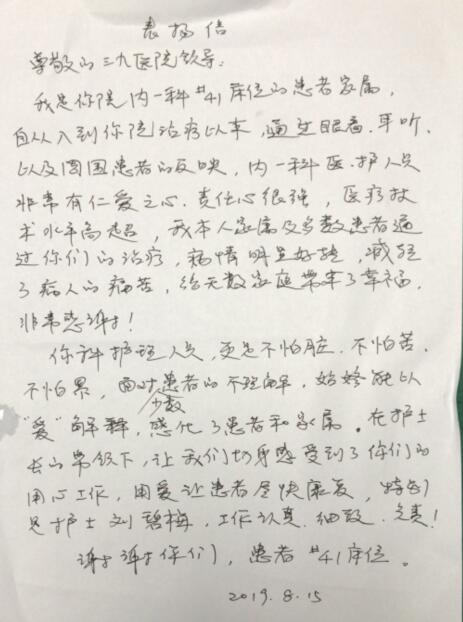 表扬信
尊敬的三九医院领导:
我是你院内一科#41床位的患者家属,
自从入到你院治疗以来,通过眼看、耳听、
以及周围患者的反映,内一科医、护人员
非常有仁爱之心、责任心很强,医疗技
术水平高超,我本人家属及多数患者通
过你们的治疗,病情明显好转,减轻
了病人的痛苦,给无数家庭带来了幸福,
非常感谢!
你科护理人员,更是不怕脏、不怕苦、
不怕累,面对少数患者的不理解,始终能以
“爱”解释,感化了患者和家属。在护士
长的带领下,让我们切身感受到了你们的
用心工作,用爱让患者尽快康复,特别
是护士刘碧梅,工作认真、细致、负责!
谢谢你们,患者#41床位。
2019.8.15